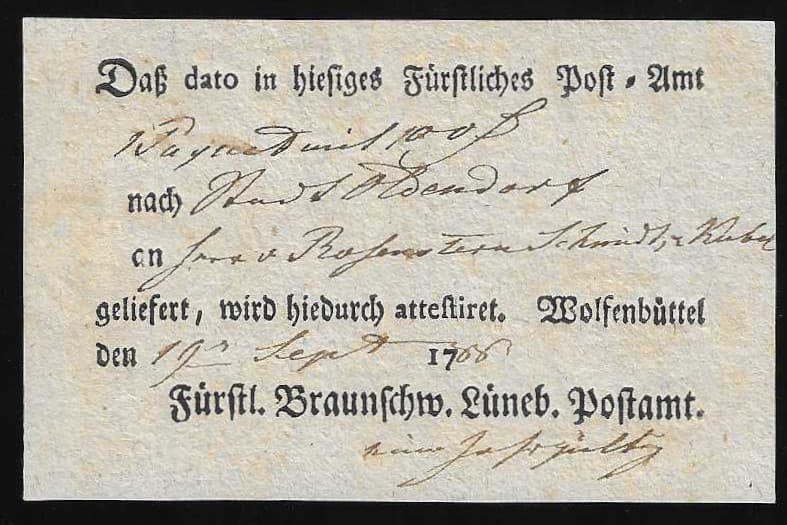 Daß dato in hiesiges Fürstliches Post-Amt
1 Paquet mit 100 f
nach Stadt Oldendorf
an Herr v Rosenstern Schmidt,
geliefert, wird hiedurch attestiret. Wolfenbüttel
den 19ⁿ Sept 1788
Fürstl. Braunschw. Lüneb. Postamt.
ein Jahr gültig